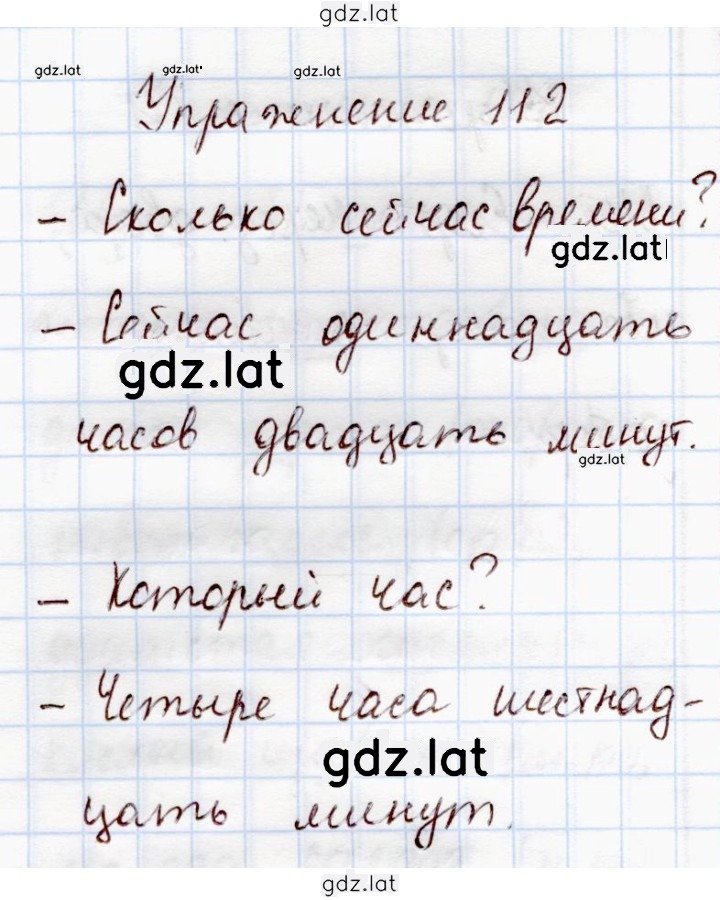 gdz.lat
gdz.lat gdz.lat gdz.lat
Упражнение 112
– Сколько сейчас времени?
gdz.lat
– Сейчас одиннадцать
gdz.lat
часов двадцать минут.
gdz.lat
– Который час?
– Четыре часа шестнад-
gdz.lat
цать минут.
gdz.lat